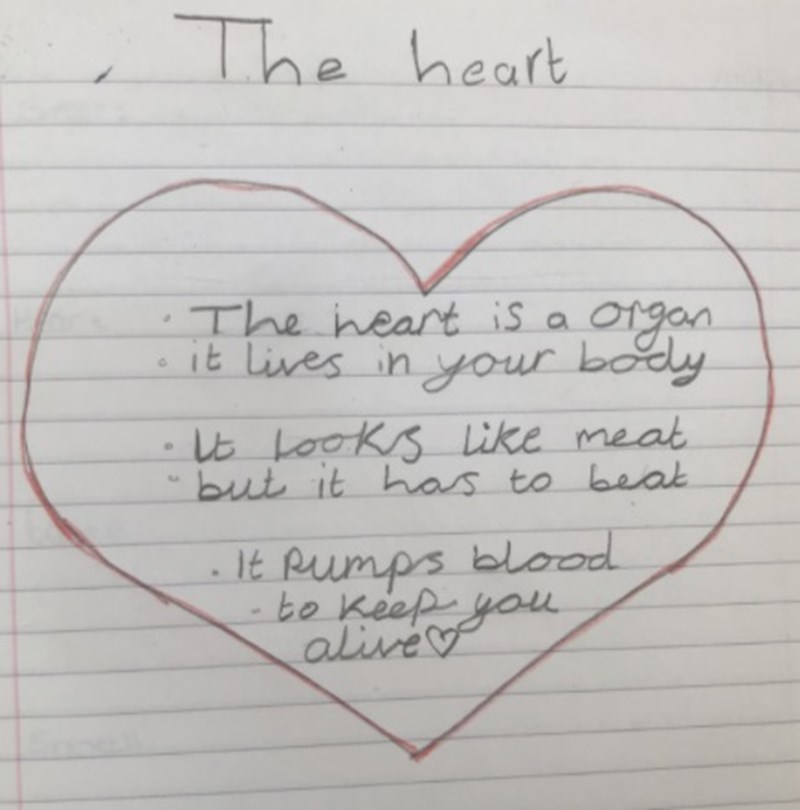 The heart
· The heart is a organ
· it lives in your body
· It looks like meat
· but it has to beat
· It pumps blood
- to keep you
alive♡